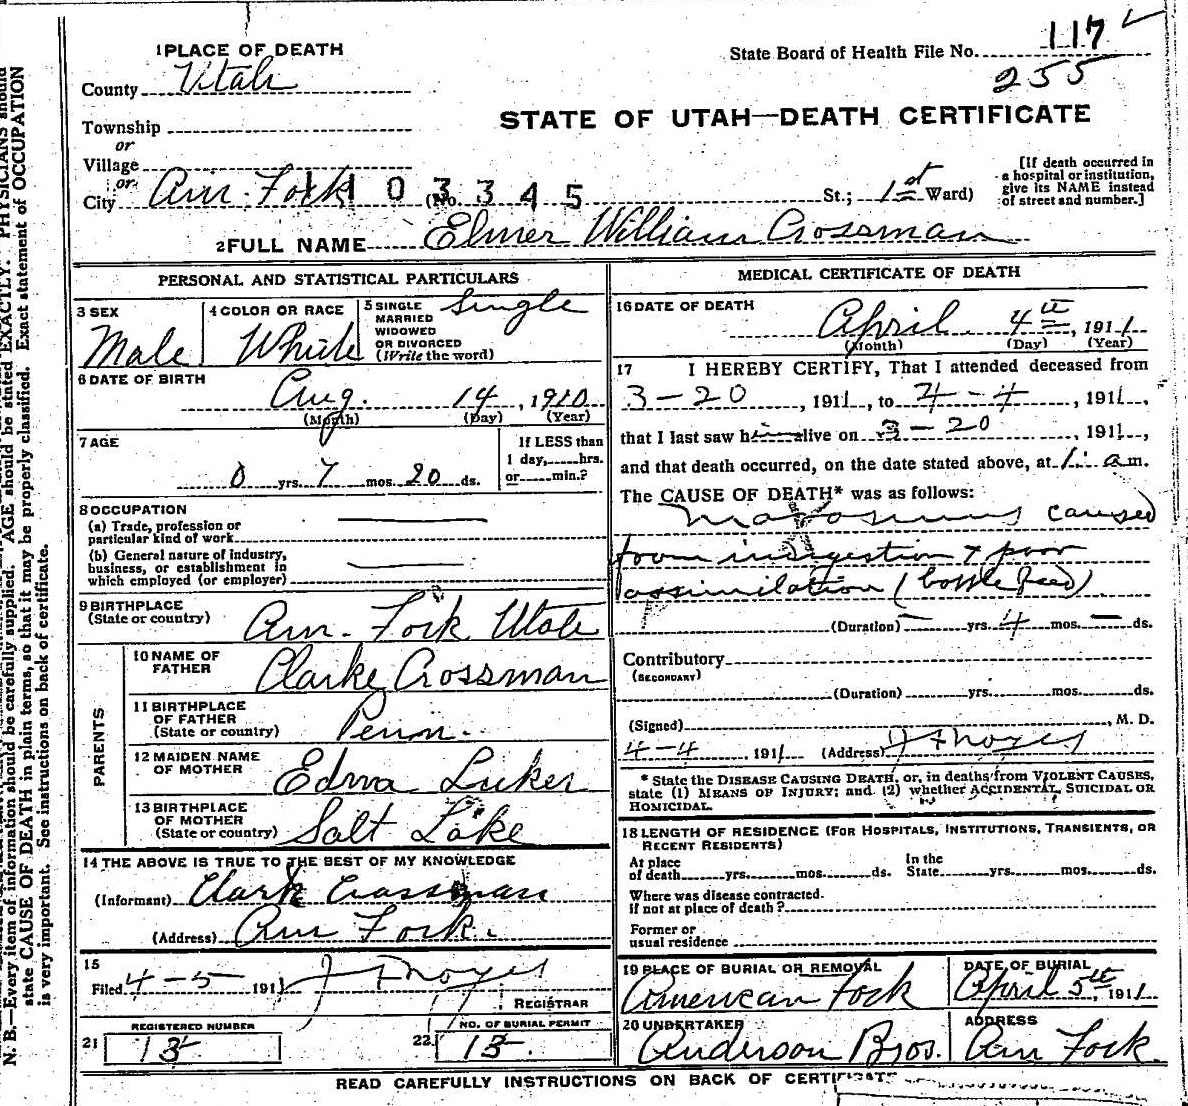 117
255
1 PLACE OF DEATH
State Board of Health File No.
County Utah
STATE OF UTAH—DEATH CERTIFICATE
Township
or
Village
or
City Am. Fork 1103345 (No. St.; 1st Ward)
[If death occurred in
a hospital or institution,
give its NAME instead
of street and number.]
2 FULL NAME Elmer William Crossman
PERSONAL AND STATISTICAL PARTICULARS
3 SEX
Male
4 COLOR OR RACE
White
5 SINGLE
MARRIED
WIDOWED
OR DIVORCED
(Write the word)
Single
6 DATE OF BIRTH
Aug. 14, 1910
(Month) (Day) (Year)
7 AGE
0 yrs. 7 mos. 20 ds.
If LESS than
1 day, hrs.
or min.?
8 OCCUPATION
(a) Trade, profession or
particular kind of work
(b) General nature of industry,
business, or establishment in
which employed (or employer)
9 BIRTHPLACE
(State or country)
Am. Fork Utah
PARENTS
10 NAME OF
FATHER
Clarke Crossman
11 BIRTHPLACE
OF FATHER
(State or country)
Penn.
12 MAIDEN NAME
OF MOTHER
Edna Luker
13 BIRTHPLACE
OF MOTHER
(State or country)
Salt Lake
14 THE ABOVE IS TRUE TO THE BEST OF MY KNOWLEDGE
(Informant) Clark Crossman
(Address) Am Fork.
15
Filed 4-5 1911 J F Noyes
REGISTRAR
REGISTERED NUMBER
21 13
NO. OF BURIAL PERMIT
22 13
MEDICAL CERTIFICATE OF DEATH
16 DATE OF DEATH
April 4th, 1911
(Month) (Day) (Year)
17 I HEREBY CERTIFY, That I attended deceased from
3-20, 1911, to 4-4, 1911,
that I last saw him alive on 3-20, 1911,
and that death occurred, on the date stated above, at 1 a m.
The CAUSE OF DEATH* was as follows:
caused
from indigestion & poor
assimilation (bottle feed)
(Duration) — yrs. 4 mos. — ds.
Contributory
(SECONDARY)
(Duration) yrs. mos. ds.
(Signed) , M. D.
4-4 1911 (Address) J F Noyes
* State the DISEASE CAUSING DEATH, or, in deaths from VIOLENT CAUSES,
state (1) MEANS OF INJURY; and (2) whether ACCIDENTAL, SUICIDAL OR
HOMICIDAL.
18 LENGTH OF RESIDENCE (FOR HOSPITALS, INSTITUTIONS, TRANSIENTS, OR
RECENT RESIDENTS)
At place
of death yrs. mos. ds.
In the
State yrs. mos. ds.
Where was disease contracted.
if not at place of death?
Former or
usual residence
19 PLACE OF BURIAL OR REMOVAL
American Fork
DATE OF BURIAL
April 5th, 1911
20 UNDERTAKER
Anderson Bros.
ADDRESS
Am Fork.
READ CAREFULLY INSTRUCTIONS ON BACK OF CERTIFICATE
N. B.—Every item of information should be carefully supplied. AGE should be stated EXACTLY. PHYSICIANS should
state CAUSE OF DEATH in plain terms, so that it may be properly classified. Exact statement of OCCUPATION
is very important. See instructions on back of certificate.